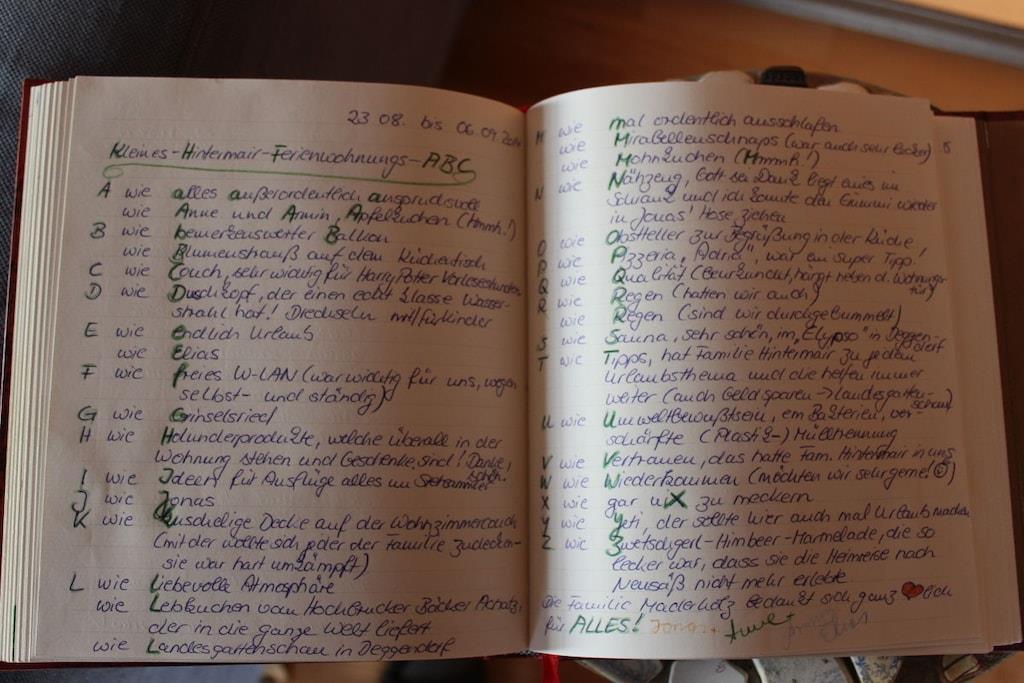 23 08. bis 06.09.
Kleines-Hintermair-Ferienwohnungs-ABC
A wie alles außerordentlich anspruchsvoll
wie Anne und Armin, Apfelkuchen (Hmmh!)
B wie bemerkenswerter Balkon
wie Blumenstrauß auf dem Küchentisch
C wie Couch, sehr wichtig für Harry Potter Vorlesestunden
D wie Duschkopf, der einen echt klasse Wasser-
strahl hat! Drechseln mit/für Kinder
E wie endlich Urlaub
wie Elias
F wie freies W-LAN (war wichtig für uns, wegen
selbst- und ständig)
G wie Grinselsried
H wie Holunderprodukte, welche überall in der
Wohnung stehen und Geschenke sind! Danke,
schön.
I wie Ideen für Ausflüge alles im
J wie Jonas
K wie kuschelige Decke auf der Wohnzimmercouch
(mit der wollte sich jeder der Familie zudecken-
sie war hart umkämpft)
L wie Liebevolle Atmosphäre
wie Lebkuchen vom Hochbrucker Bäcker
der in die ganze Welt liefert
wie Landesgartenschau in Deggendorf
M wie mal ordentlich ausschlafen
wie Mirabellenschnaps (war auch sehr lecker)
wie Mohnkuchen (Hmmh!)
N wie Nähzeug, Gott sei Dank liegt eines im
Schrank und ich konnte den Gummi wieder
in Jonas' Hose ziehen
O wie Obstteller zur Begrüßung in der Küche
P wie Pizzeria, "Adria", war ein super Tipp!
Q wie Qualität (beurkundet, hängt neben d. Wohnungs-
tür)
R wie Regen (hatten wir auch)
wie Regen (sind wir durchgebummelt)
S wie Sauna, sehr schön, im "Elypso" in Deggen-
dorf
T wie Tipps, hat Familie Hintermair zu jedem
Urlaubsthema und die helfen immer
weiter (auch Geld sparen → Landesgarten-
schau)
U wie Umweltbewußtsein, ein Batterien, ver-
schärfte (Plastik-) Mülltrennung
V wie Vertrauen, das hatte Fam. Hintermair in uns
W wie Wiederkommen (möchten wir sehr gerne! ☺)
X wie gar nix zu meckern
Y wie Yeti, der sollte hier auch mal Urlaub machen
Z wie Zwetschgerl-Himbeer-Marmelade, die so
lecker war, dass sie die Heimreise nach
Neusäß nicht mehr erlebte
Die Familie Maderholz bedankt sich ganz ❤lich
für ALLES! Jonas Elias